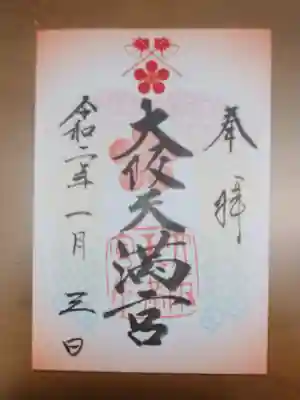 奉拝
大阪天満宮
令和二年一月三日